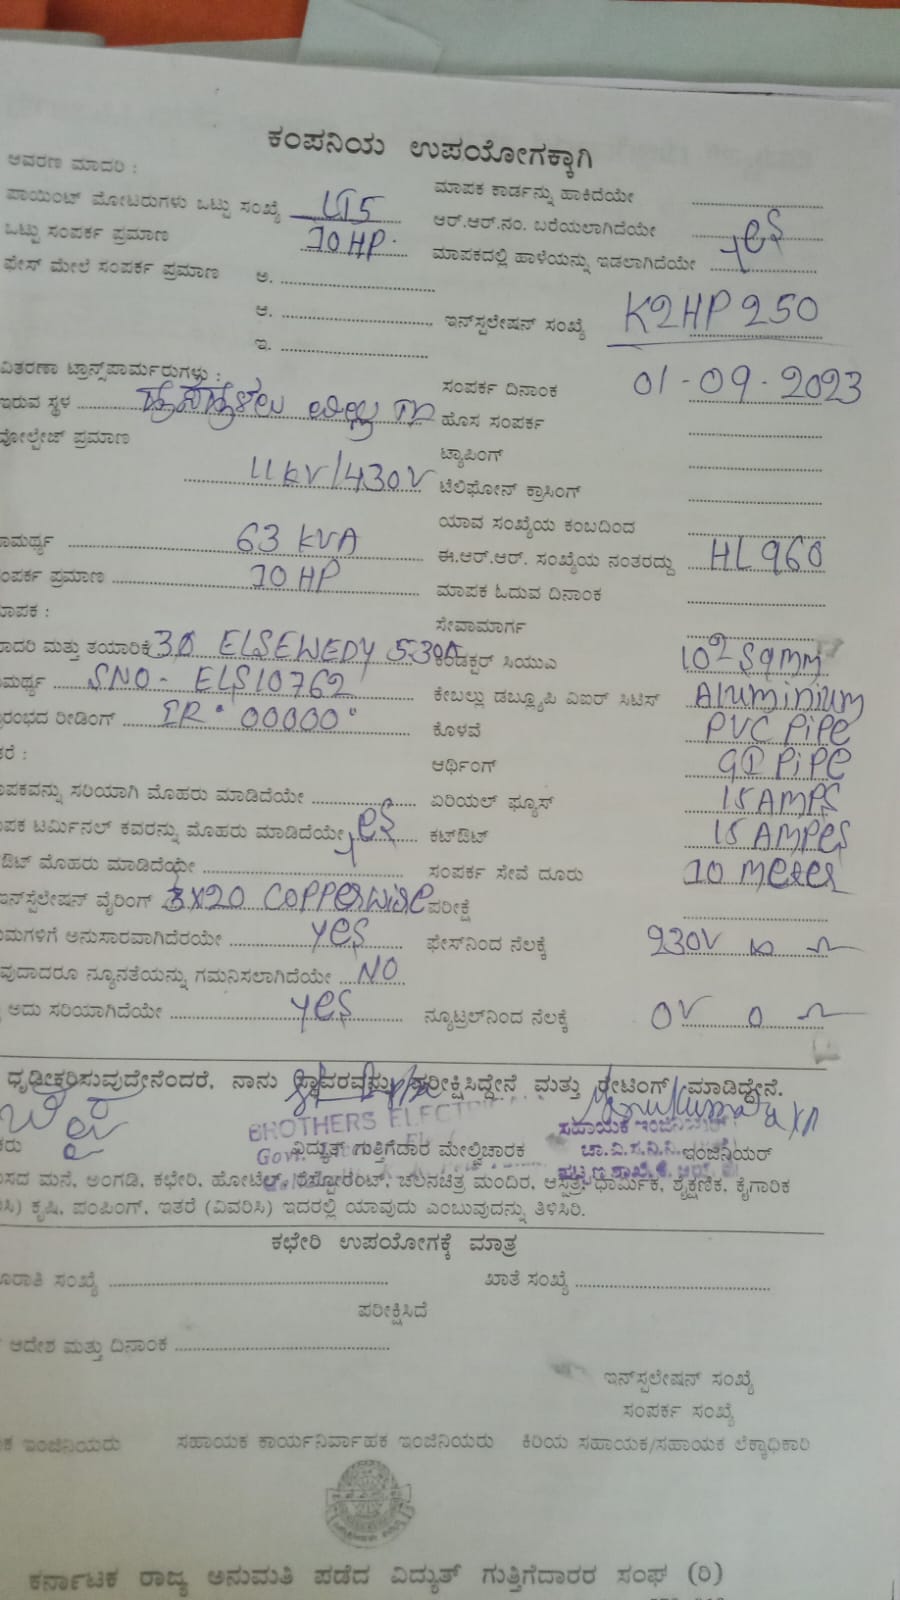 ಕಂಪನಿಯ ಉಪಯೋಗಕ್ಕಾಗಿ
ಆವರಣ ಮಾದರಿ :
ಮಾಪಕ ಕಾರ್ಡನ್ನು ಹಾಕಿದೆಯೇ
ಪಾಯಿಂಟ್ ಮೋಟರುಗಳು ಒಟ್ಟು ಸಂಖ್ಯೆ LT5
ಆರ್.ಆರ್.ನಂ. ಬರೆಯಲಾಗಿದೆಯೇ yes
ಒಟ್ಟು ಸಂಪರ್ಕ ಪ್ರಮಾಣ 10 HP.
ಮಾಪಕದಲ್ಲಿ ಹಾಳೆಯನ್ನು ಇಡಲಾಗಿದೆಯೇ
ಫೇಸ್ ಮೇಲೆ ಸಂಪರ್ಕ ಪ್ರಮಾಣ ಅ.
ಆ.
ಇನ್ಸ್ಟಲೇಷನ್ ಸಂಖ್ಯೆ K2HP250
ಇ.
ವಿತರಣಾ ಟ್ರಾನ್ಸ್‌ಪಾರ್ಮರುಗಳು :
ಸಂಪರ್ಕ ದಿನಾಂಕ 01-09-2023
ಇರುವ ಸ್ಥಳ
ಹೊಸ ಸಂಪರ್ಕ
ವೋಲ್ಟೇಜ್ ಪ್ರಮಾಣ
ಟ್ಯಾಪಿಂಗ್
11KV/430V
ಟೆಲಿಫೋನ್ ಕ್ರಾಸಿಂಗ್
ಯಾವ ಸಂಖ್ಯೆಯ ಕಂಬದಿಂದ
63 KVA
ಈ.ಆರ್.ಆರ್. ಸಂಖ್ಯೆಯ ನಂತರದ್ದು HL960
ಸಂಪರ್ಕ ಪ್ರಮಾಣ 10 HP
ಮಾಪಕ ಓದುವ ದಿನಾಂಕ
ಸೇವಾಮಾರ್ಗ
ಮತ್ತು ತಯಾರಿಕೆ 3Ø ELSEWEDY 5-30A
ಸಿಯುಎ 10² Sqmm
SNO- ELS10762
ಕೇಬಲ್ಲು ಡಬ್ಲ್ಯೂಪಿ ಎಐಆರ್ ಸಿಟಿಸ್ Aluminium
ರೀಡಿಂಗ್ IR "00000"
ಕೊಳವೆ PVC PiPe
ಆರ್ಥಿಂಗ್ GI PiPe
ಸರಿಯಾಗಿ ಮೊಹರು ಮಾಡಿದೆಯೇ
ಏರಿಯಲ್ ಫ್ಯೂಸ್ 15 AMPS
ಟರ್ಮಿನಲ್ ಕವರನ್ನು ಮೊಹರು ಮಾಡಿದೆಯೇ yes
ಕಟ್‌ಔಟ್ 15 AMPeS
ಮೊಹರು ಮಾಡಿದೆಯೇ
ಸಂಪರ್ಕ ಸೇವೆ ದೂರು 10 Meter
ವೈರಿಂಗ್ 3X20 COPPerwire
ಪರೀಕ್ಷೆ
ಅನುಸಾರವಾಗಿದೆರಯೇ yes
ಫೇಸ್‌ನಿಂದ ನೆಲಕ್ಕೆ 230V
ನ್ಯೂನತೆಯನ್ನು ಗಮನಿಸಲಾಗಿದೆಯೇ NO
ಅದು ಸರಿಯಾಗಿದೆಯೇ yes
ನ್ಯೂಟ್ರಲ್‌ನಿಂದ ನೆಲಕ್ಕೆ 0V 0
ಧೃಡೀಕರಿಸುವುದೇನೆಂದರೆ, ನಾನು ಸ್ಥಾವರವನ್ನು ಪರೀಕ್ಷಿಸಿದ್ದೇನೆ ಮತ್ತು ರೇಟಿಂಗ್ ಮಾಡಿದ್ದೇನೆ.
BROTHERS
ಸಹಾಯಕ ಇಂಜಿನಿಯರ್
ವಿದ್ಯುತ್ ಗುತ್ತಿಗೆದಾರ ಮೇಲ್ವಿಚಾರಕ
ಚಾ.ವಿ.ಸ.ನಿ.ನಿ.
ಇಂಜಿನಿಯರ್
ಮನೆ, ಅಂಗಡಿ, ಕಛೇರಿ, ಹೋಟೆಲ್, ರೆಸ್ಟೋರೆಂಟ್, ಚಲನಚಿತ್ರ ಮಂದಿರ, ಆಸ್ಪತ್ರೆ, ಧಾರ್ಮಿಕ, ಶೈಕ್ಷಣಿಕ, ಕೈಗಾರಿಕ
ಕೃಷಿ, ಪಂಪಿಂಗ್, ಇತರೆ (ವಿವರಿಸಿ) ಇದರಲ್ಲಿ ಯಾವುದು ಎಂಬುವುದನ್ನು ತಿಳಿಸಿರಿ.
ಕಛೇರಿ ಉಪಯೋಗಕ್ಕೆ ಮಾತ್ರ
ಸಂಖ್ಯೆ
ಖಾತೆ ಸಂಖ್ಯೆ
ಪರೀಕ್ಷಿಸಿದೆ
ಆದೇಶ ಮತ್ತು ದಿನಾಂಕ
ಇನ್ಸ್ಟಲೇಷನ್ ಸಂಖ್ಯೆ
ಸಂಪರ್ಕ ಸಂಖ್ಯೆ
ಇಂಜಿನಿಯರು ಸಹಾಯಕ ಕಾರ್ಯನಿರ್ವಾಹಕ ಇಂಜಿನಿಯರು ಕಿರಿಯ ಸಹಾಯಕ/ಸಹಾಯಕ ಲೆಕ್ಕಾಧಿಕಾರಿ
ಕರ್ನಾಟಕ ರಾಜ್ಯ ಅನುಮತಿ ಪಡೆದ ವಿದ್ಯುತ್ ಗುತ್ತಿಗೆದಾರರ ಸಂಘ (ರಿ)